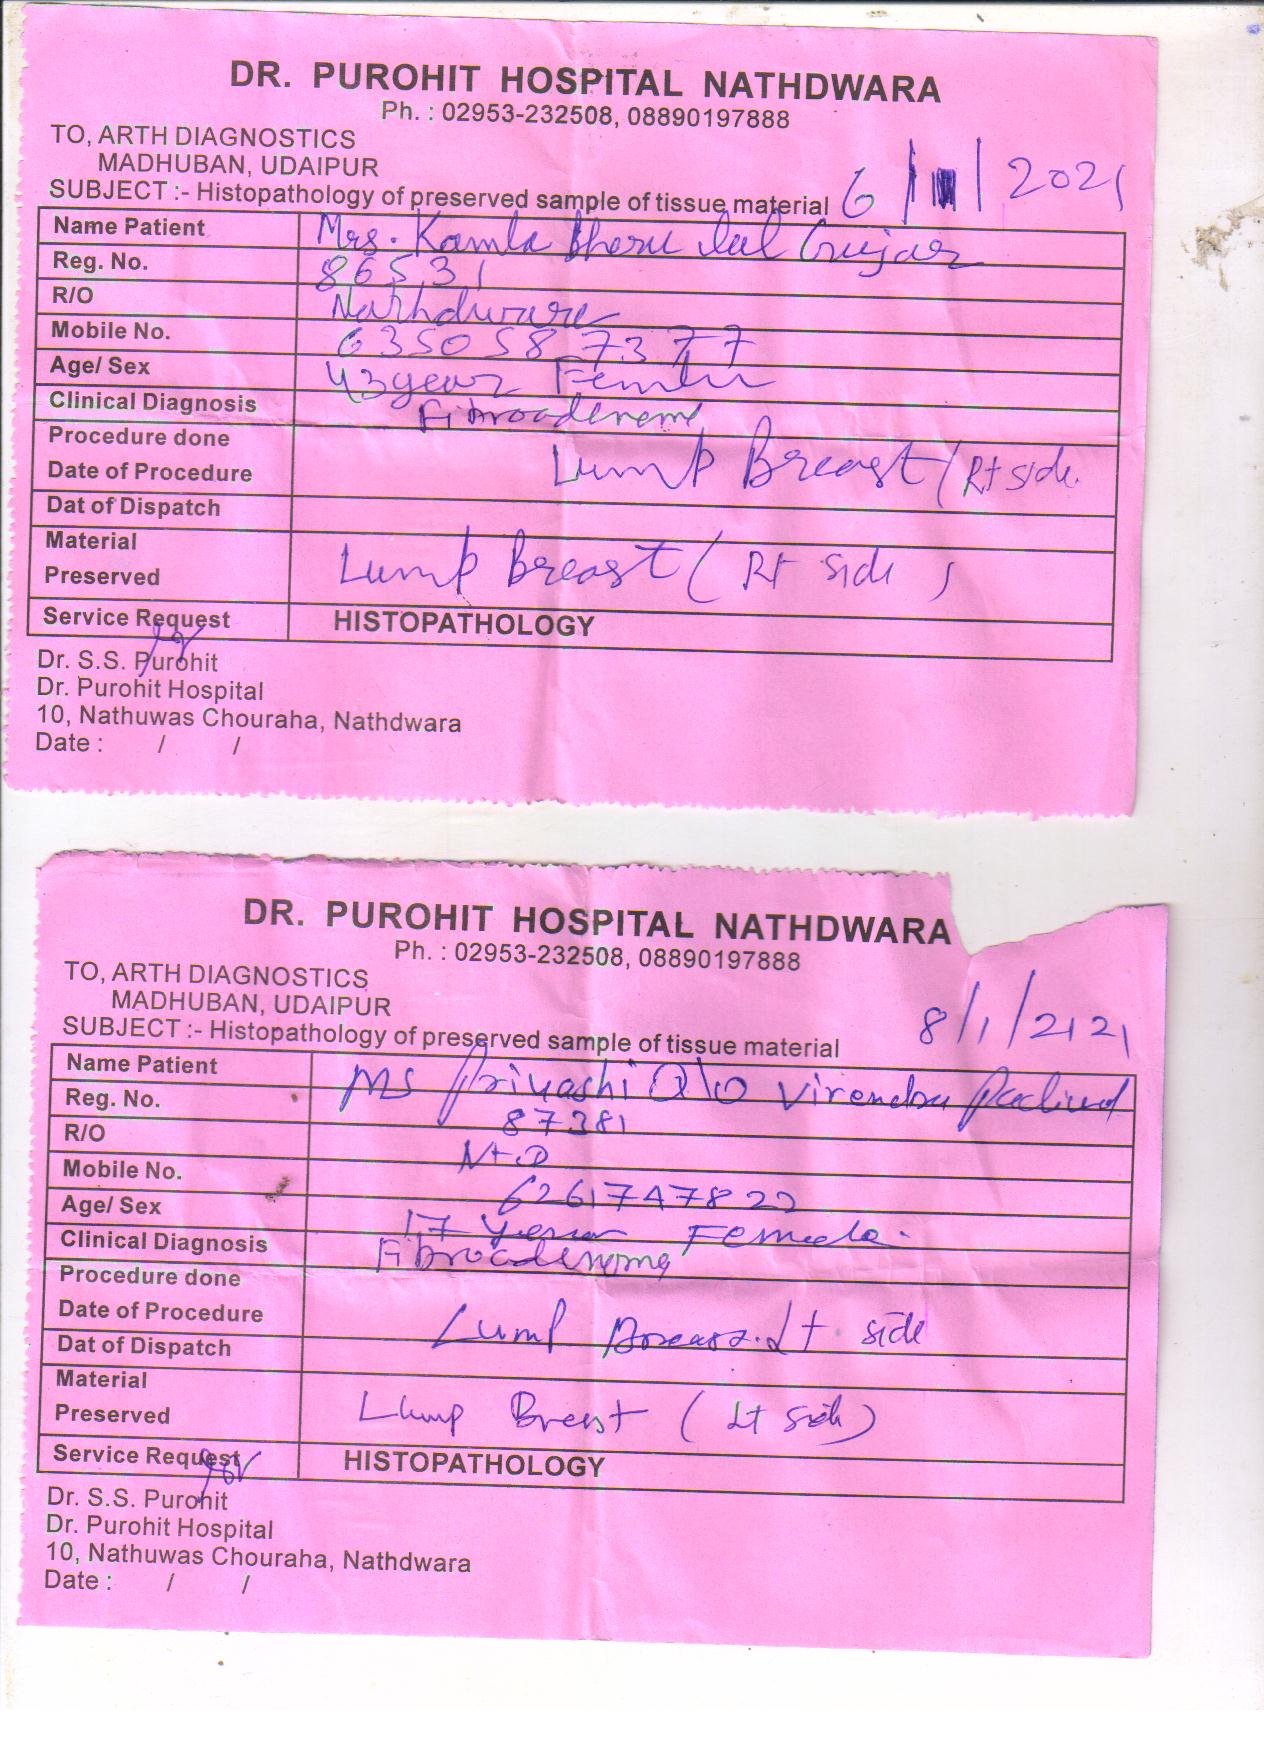 DR. PUROHIT HOSPITAL NATHDWARA
Ph. : 02953-232508, 08890197888
TO, ARTH DIAGNOSTICS
MADHUBAN, UDAIPUR
SUBJECT :- Histopathology of preserved sample of tissue material 6/ /2021
Name Patient Mrs. Kamla Bheru lal Gujar
Reg. No. 86531
R/O Nathdwara
Mobile No. 6350587377
Age/ Sex 43 year Female
Clinical Diagnosis Fibroadenoma
Procedure done
Date of Procedure Lump Breast / Rt side.
Dat of Dispatch
Material
Preserved Lump Breast ( Rt side )
Service Request HISTOPATHOLOGY
Dr. S.S. Purohit
Dr. Purohit Hospital
10, Nathuwas Chouraha, Nathdwara
Date : / /
DR. PUROHIT HOSPITAL NATHDWARA
Ph. : 02953-232508, 08890197888
TO, ARTH DIAGNOSTICS
MADHUBAN, UDAIPUR
SUBJECT :- Histopathology of preserved sample of tissue material 8/1/2121
Name Patient MS Priyashi D/O Virendra
Reg. No. 87381
R/O NTD
Mobile No. 6261747822
Age/ Sex 17 year Female.
Clinical Diagnosis Fibroadenoma
Procedure done
Date of Procedure Lump Breast Lt side
Dat of Dispatch
Material
Preserved Lump Breast ( Lt side )
Service Request HISTOPATHOLOGY
Dr. S.S. Purohit
Dr. Purohit Hospital
10, Nathuwas Chouraha, Nathdwara
Date : / /